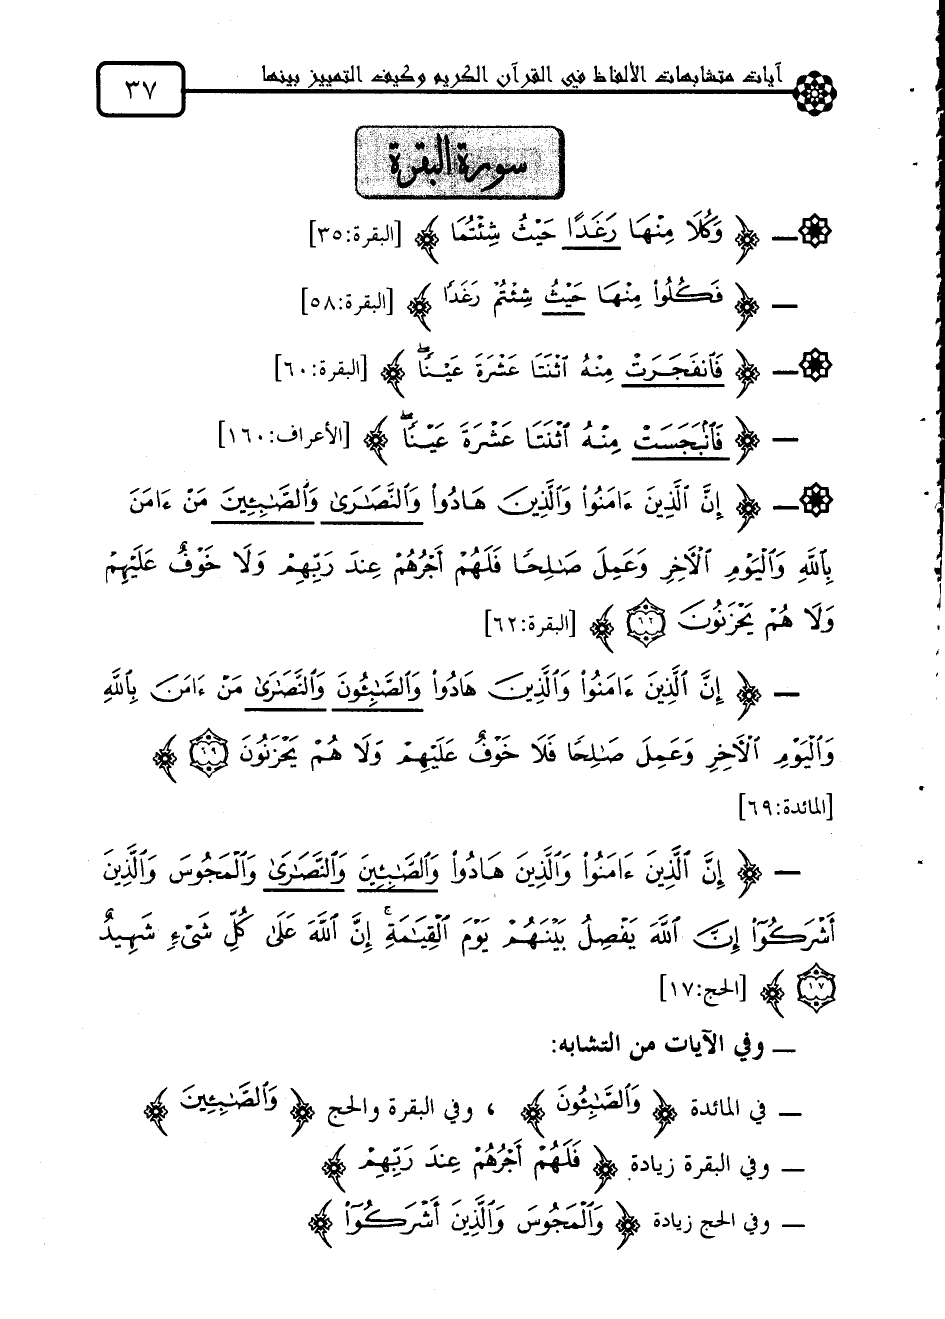 آيات متشابهات الألفاظ في القرآن الكريم وكيف التمييز بينها
٣٧
سورة البقرة
— ﴿ وَكُلَا مِنْهَا رَغَدًا حَيْثُ شِئْتُمَا ﴾ [البقرة:٣٥]
— ﴿ فَكُلُوا۟ مِنْهَا حَيْثُ شِئْتُمْ رَغَدًا ﴾ [البقرة:٥٨]
— ﴿ فَٱنفَجَرَتْ مِنْهُ ٱثْنَتَا عَشْرَةَ عَيْنًاۖ ﴾ [البقرة:٦٠]
— ﴿ فَٱنۢبَجَسَتْ مِنْهُ ٱثْنَتَا عَشْرَةَ عَيْنًاۖ ﴾ [الأعراف:١٦٠]
— ﴿ إِنَّ ٱلَّذِينَ ءَامَنُوا۟ وَٱلَّذِينَ هَادُوا۟ وَٱلنَّصَـٰرَىٰ وَٱلصَّـٰبِـِٔينَ مَنْ ءَامَنَ
بِٱللَّهِ وَٱلْيَوْمِ ٱلْـَٔاخِرِ وَعَمِلَ صَـٰلِحًا فَلَهُمْ أَجْرُهُمْ عِندَ رَبِّهِمْ وَلَا خَوْفٌ عَلَيْهِمْ
وَلَا هُمْ يَحْزَنُونَ ٦٢ ﴾ [البقرة:٦٢]
— ﴿ إِنَّ ٱلَّذِينَ ءَامَنُوا۟ وَٱلَّذِينَ هَادُوا۟ وَٱلصَّـٰبِـُٔونَ وَٱلنَّصَـٰرَىٰ مَنْ ءَامَنَ بِٱللَّهِ
وَٱلْيَوْمِ ٱلْـَٔاخِرِ وَعَمِلَ صَـٰلِحًا فَلَا خَوْفٌ عَلَيْهِمْ وَلَا هُمْ يَحْزَنُونَ ٦٩ ﴾
[المائدة:٦٩]
— ﴿ إِنَّ ٱلَّذِينَ ءَامَنُوا۟ وَٱلَّذِينَ هَادُوا۟ وَٱلصَّـٰبِـِٔينَ وَٱلنَّصَـٰرَىٰ وَٱلْمَجُوسَ وَٱلَّذِينَ
أَشْرَكُوٓا۟ إِنَّ ٱللَّهَ يَفْصِلُ بَيْنَهُمْ يَوْمَ ٱلْقِيَـٰمَةِۚ إِنَّ ٱللَّهَ عَلَىٰ كُلِّ شَىْءٍ شَهِيدٌ
١٧ ﴾ [الحج:١٧]
— وفي الآيات من التشابه:
— في المائدة ﴿ وَٱلصَّـٰبِـُٔونَ ﴾ ، وفي البقرة والحج ﴿ وَٱلصَّـٰبِـِٔينَ ﴾
— وفي البقرة زيادة ﴿ فَلَهُمْ أَجْرُهُمْ عِندَ رَبِّهِمْ ﴾
— وفي الحج زيادة ﴿ وَٱلْمَجُوسَ وَٱلَّذِينَ أَشْرَكُوٓا۟ ﴾